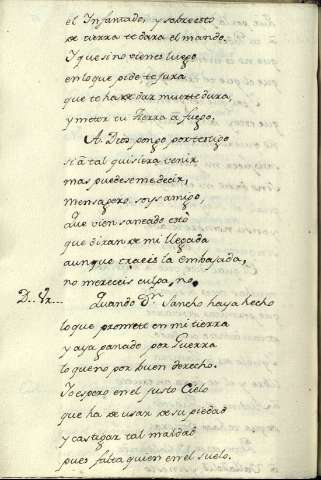 el Infantado, y sobre esto
de tierra te dara el mando.
Y que si no vienes luego
en lo que pide te jura
que te ha de dar muerte dura,
y meter tu tierra à fuego.
A Dios pongo por testigo
si à tal quisiera venir
mas puedeseme decir,
mensagero soys amigo,
Que vien saneado estò
que diran de mi llegada
aunque traeis la embajada,
no mereceis culpa, no.
D. Vr... Quando Dn. Sancho haya hecho
lo que promete en mi tierra
y aya ganado por Guerra
lo que no por buen derecho.
Yo espero en el justo Cielo
que ha de usar de su piedad
y castigar tal maldad
pues falta quien en el suelo.